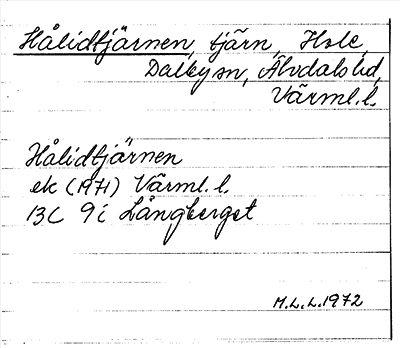 Hålidtjärnen, tjärn, Hole,
Dalbysn, Älvdals hd,
Värml. l.
Hålidtjärnen
ek (1971) Värml. l.
13C 9i Långberget
M.L.L. 1972